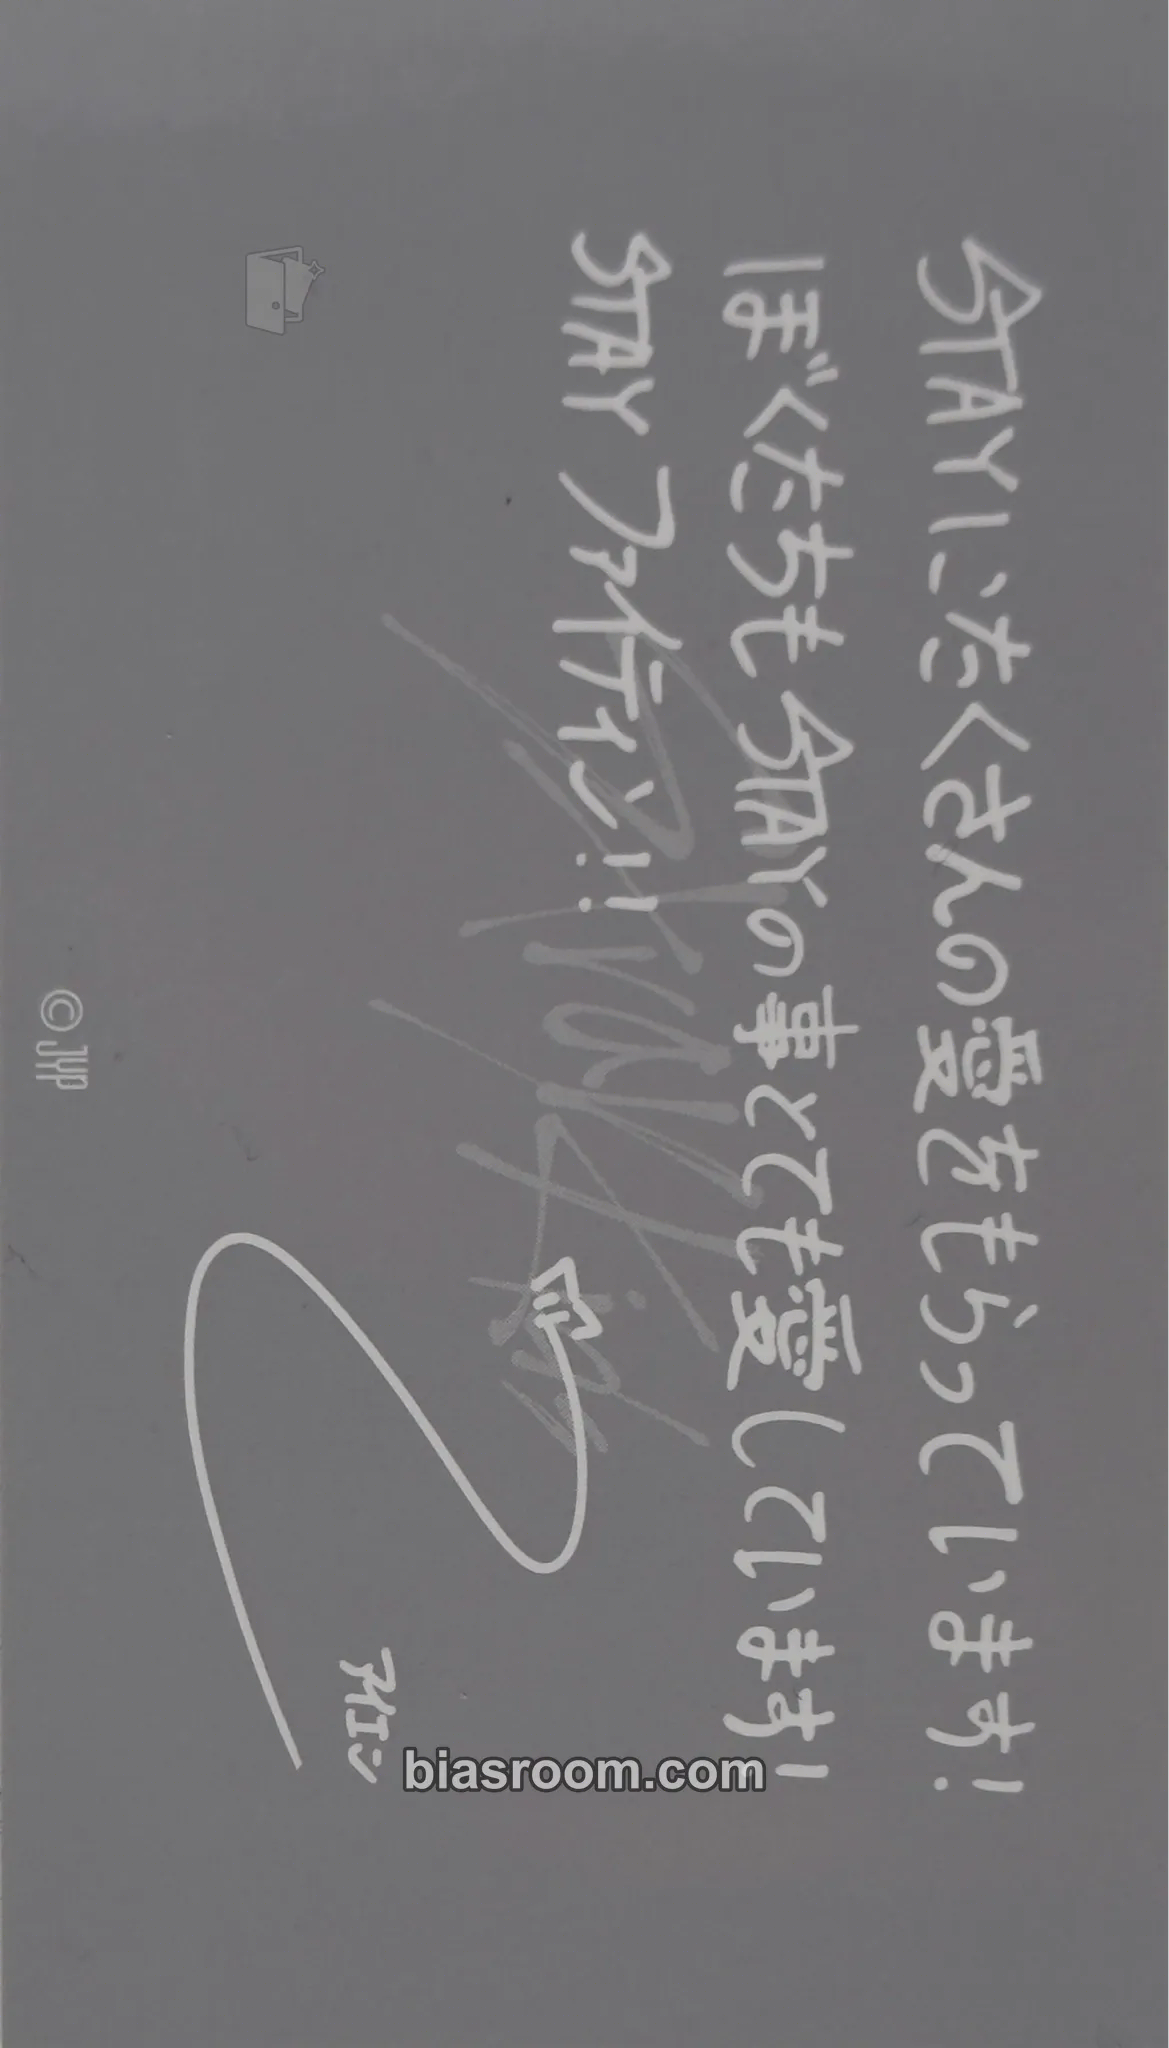 STAYにたくさんの愛をもらっています!
ぼくたちもSTAYの事とても愛しています!
STAY ファイティン!!
アイエン
©JYP
biasroom.com